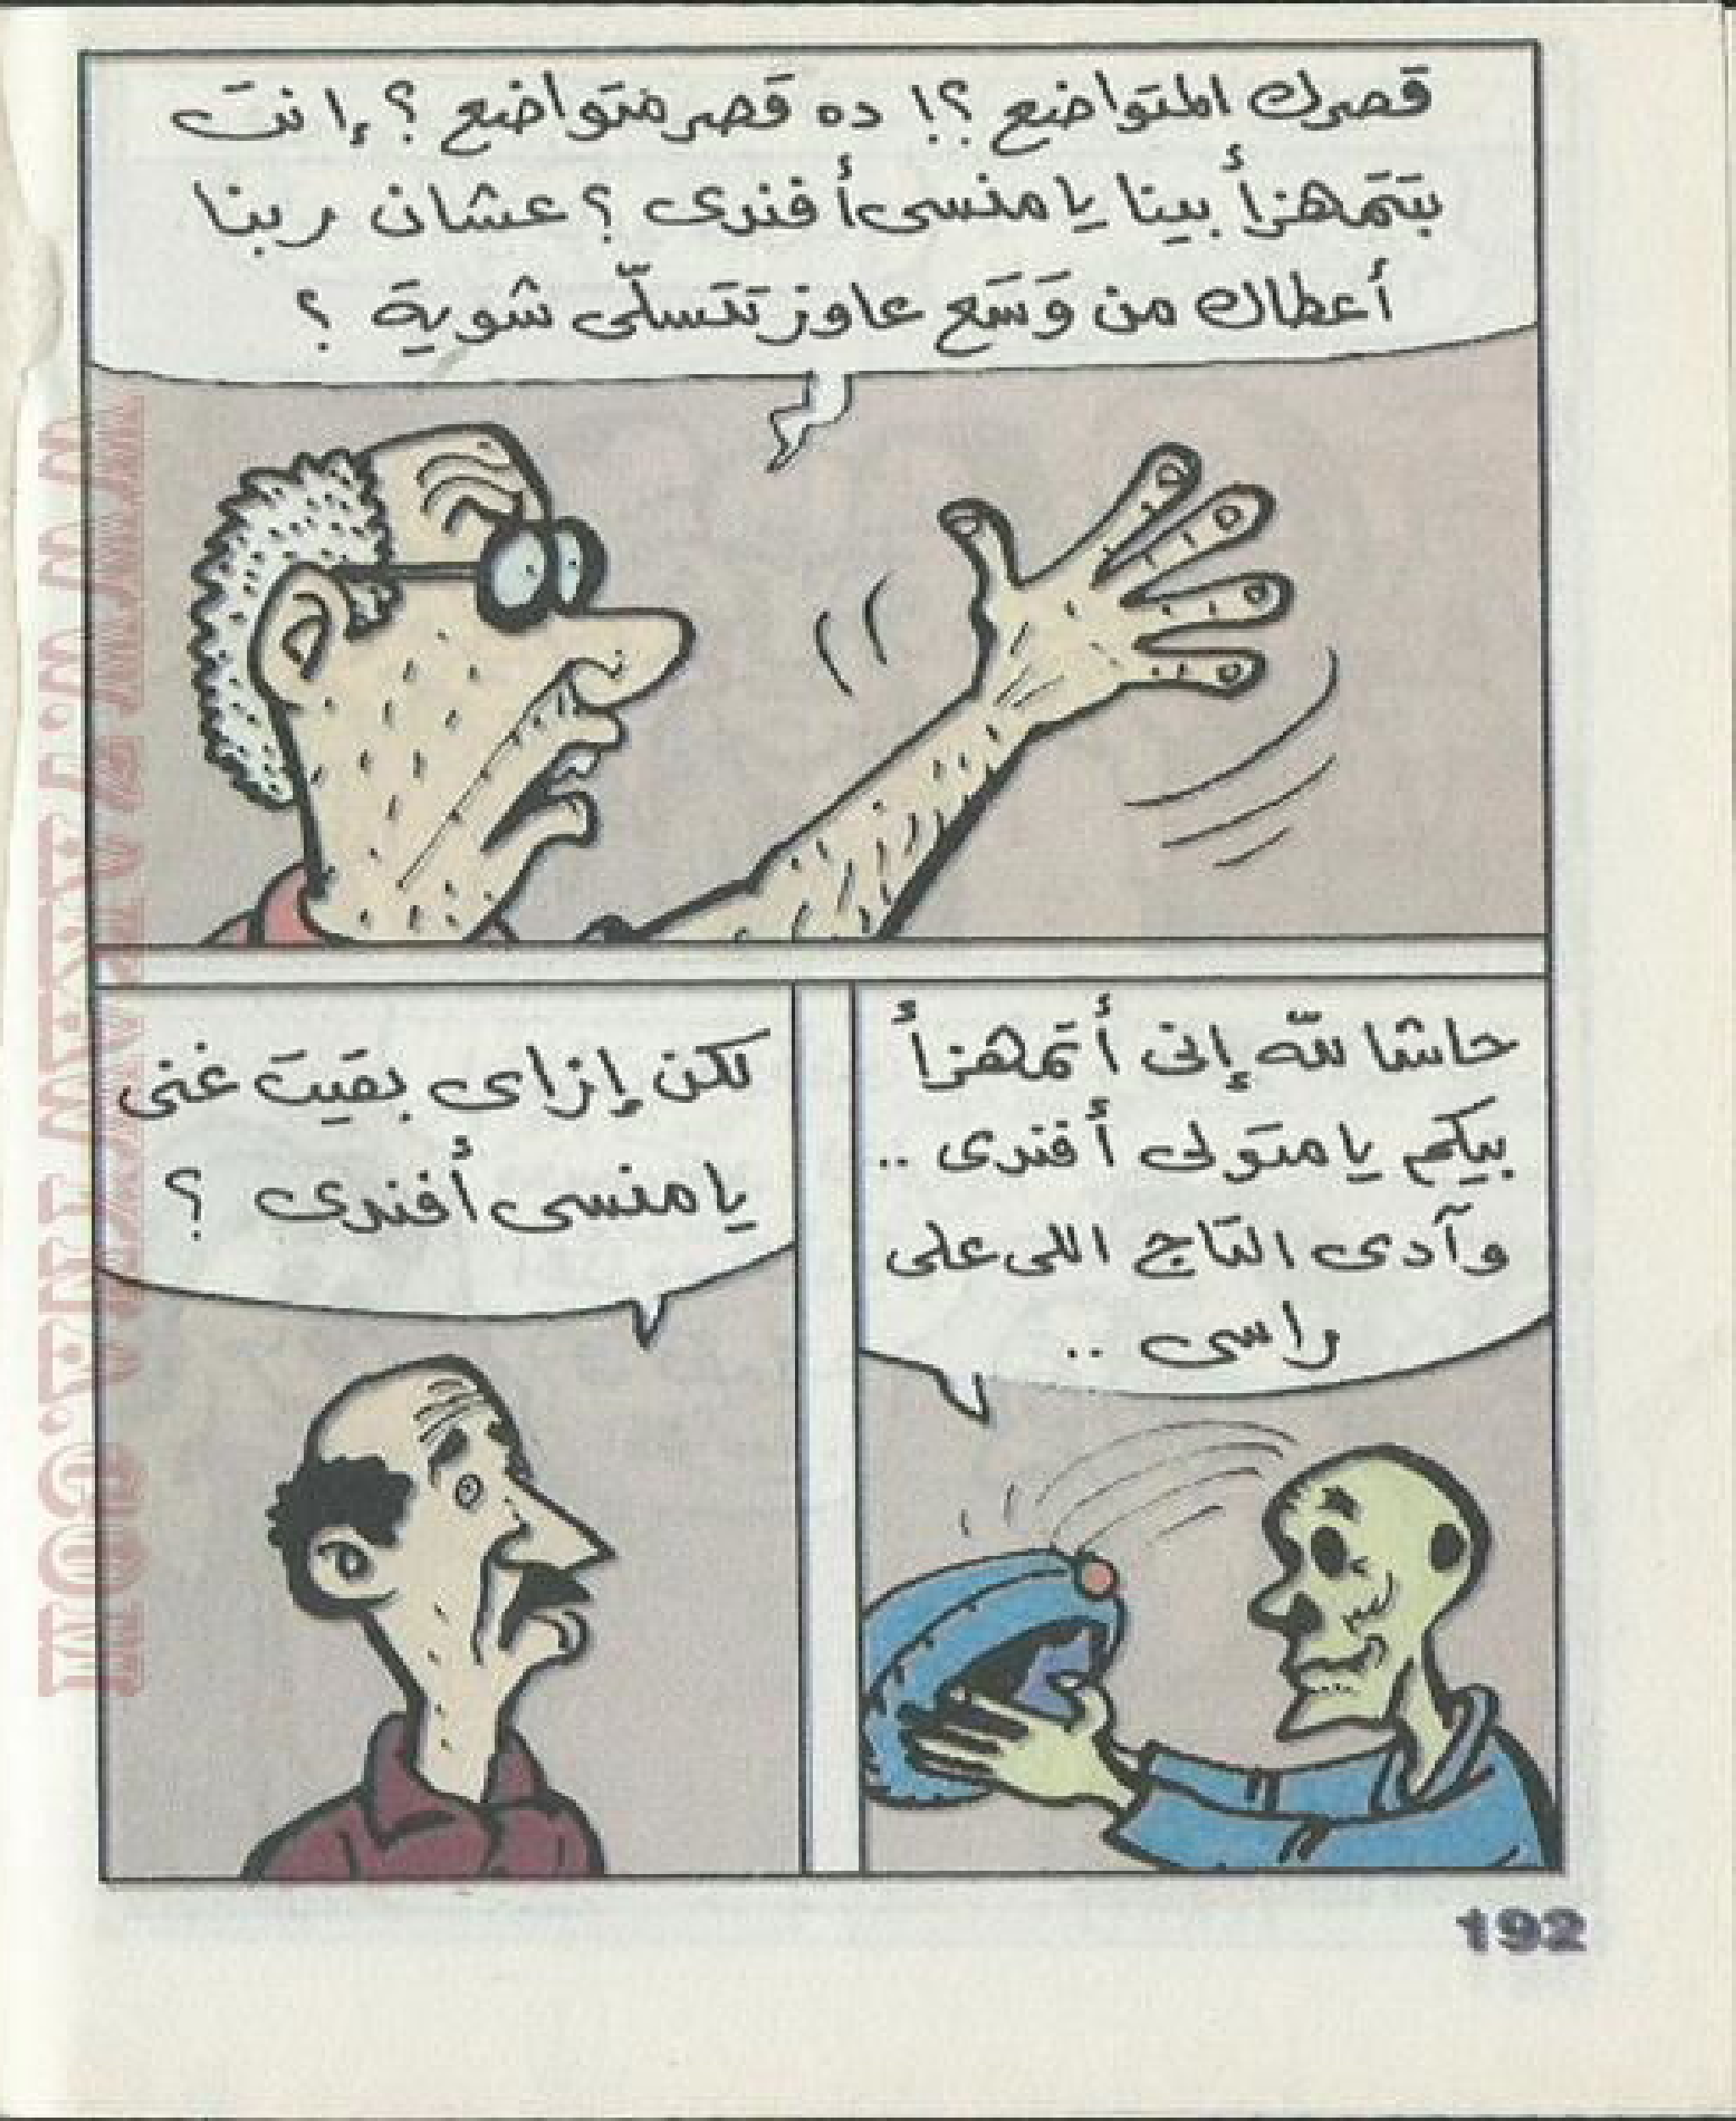 قصرك المتواضع ؟! ده قصر متواضع ؟ إنتَ
بتتمهزأ بينا يا منسى أفندى ؟ عشان ربنا
أعطاك من وَسَع عاوز تتسلّى شوية ؟
حاشا لله إنى أتمهزأ
بيكم يا متولى أفندى ..
وآدى التاج اللى على
راسى ..
لكن إزاى بقيت غنى
يا منسى أفندى ؟
192